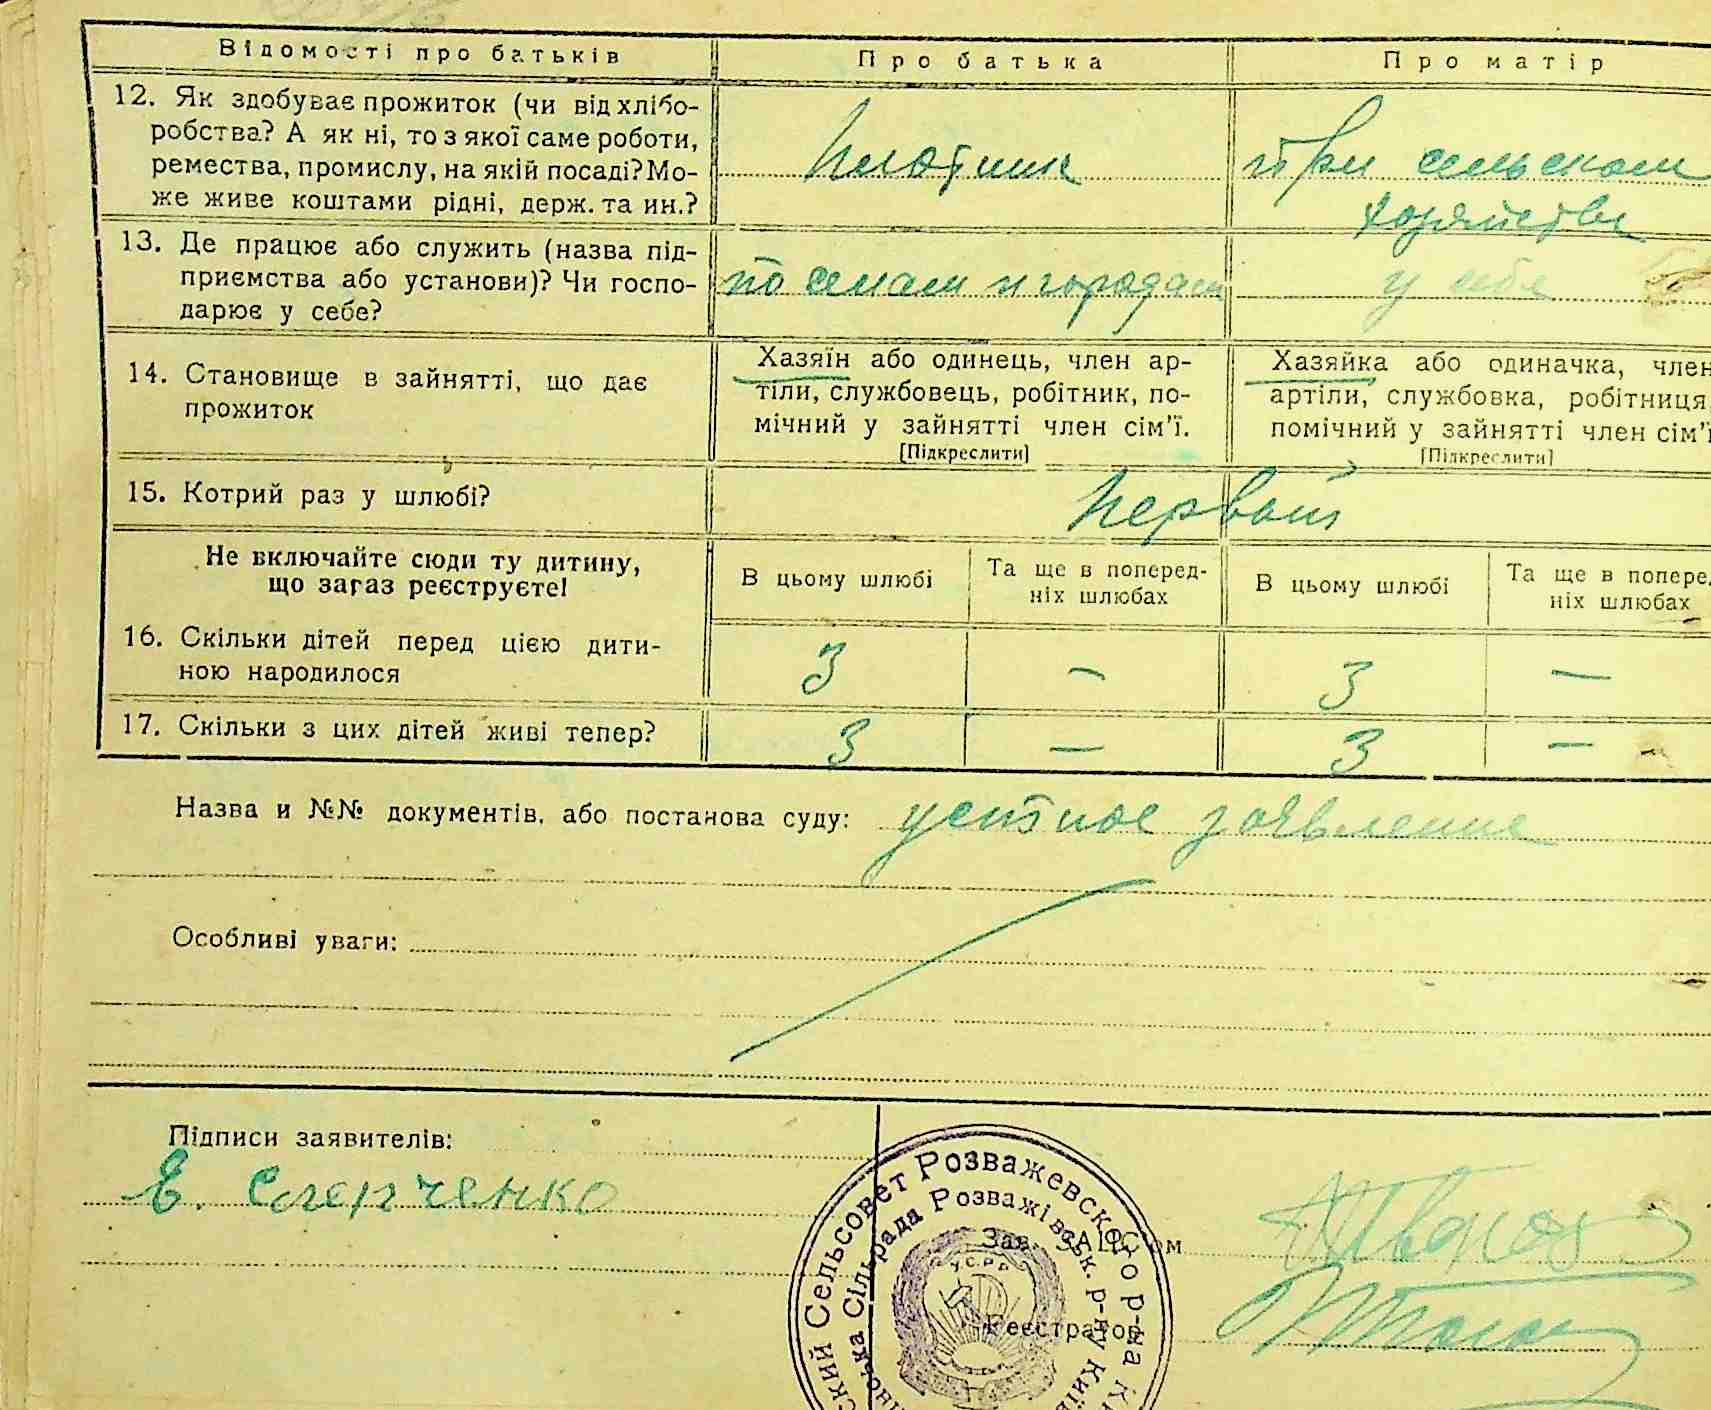 Відомості про батьків Про батька Про матір
12. Як здобуває прожиток (чи від хлібо-
робства? А як ні, то з якої саме роботи,
ремества, промислу, на якій посаді? Мо-
же живе коштами рідні, держ. та ин.?
Плотник
при сельском
хозяйстве
13. Де працює або служить (назва під-
приємства або установи)? Чи госпо-
дарює у себе?
по селам и городам
у себя
14. Становище в зайнятті, що дає
прожиток
Хазяїн або одинець, член ар-
тіли, службовець, робітник, по-
мічний у зайнятті член сім'ї.
[Підкреслити]
Хазяйка або одиначка, член
артіли, службовка, робітниця,
помічний у зайнятті член сім'ї
[Підкреслити]
15. Котрий раз у шлюбі?
Первый
Не включайте сюди ту дитину,
що зараз реєструєте!
В цьому шлюбі
Та ще в поперед-
ніх шлюбах
В цьому шлюбі
Та ще в попере
ніх шлюбах
16. Скільки дітей перед цією дити-
ною народилося
3 – 3 –
17. Скільки з цих дітей живі тепер?
3 – 3 –
Назва и №№ документів, або постанова суду: устное заявление
Особливі уваги:
Підписи заявителів:
Е. Слепченко
Зав. ЗАЦС'ом
Реєстратор
ский Сельсовет Розважевского р-на К
ська Сільрада Розважівськ. р-ну Київ
У.С.Р.Р.